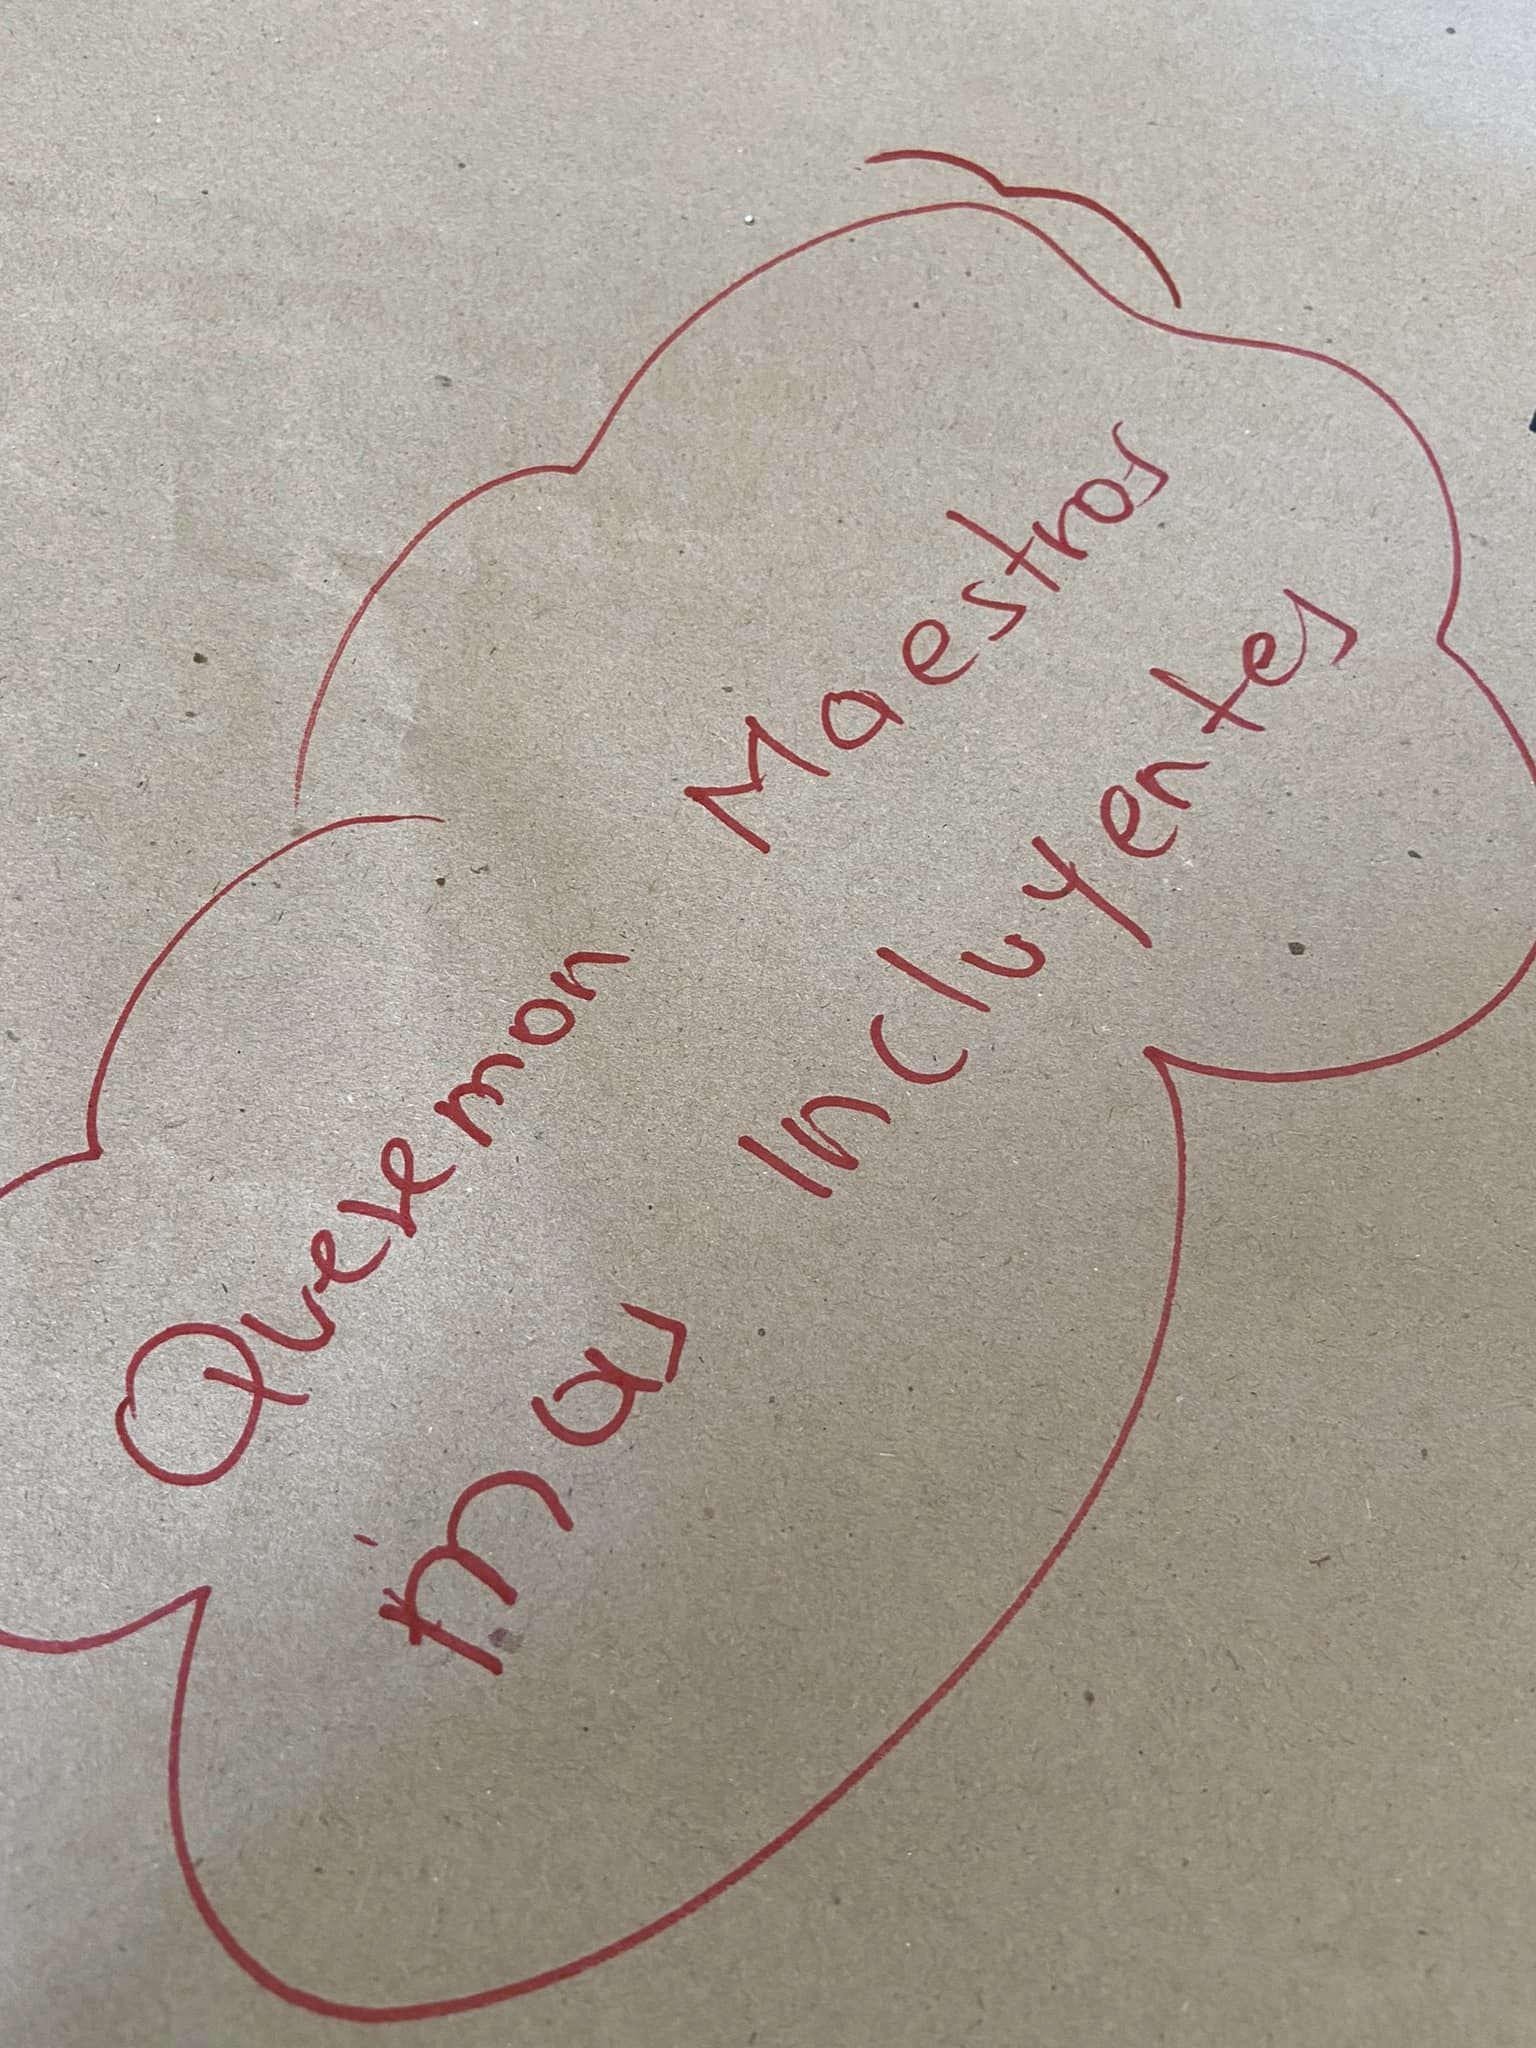 Queremon Maestros
mas Incluyentes